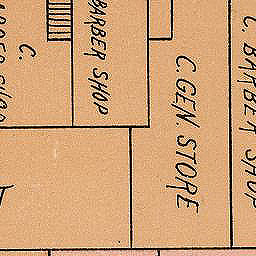 C.
BARBER SHOP
C. GEN. STORE
C. BARBER SHOP